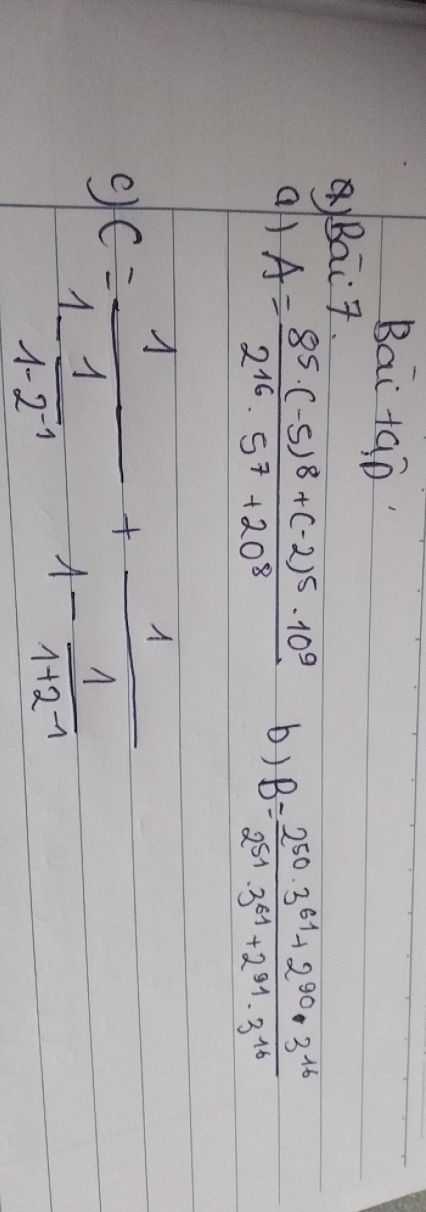 Bài tập
a) Bài 7.
a) A = \frac{8^5 . (-5)^8 + (-2)^5 . 10^9}{2^{16} . 5^7 + 20^8} b) B = \frac{2^{50} . 3^{61} + 2^{90} . 3^{16}}{2^{51} . 3^{61} + 2^{91} . 3^{16}}
c) C = \frac{1}{1 - \frac{1}{1 - 2^{-1}}} + \frac{1}{1 - \frac{1}{1 + 2^{-1}}}